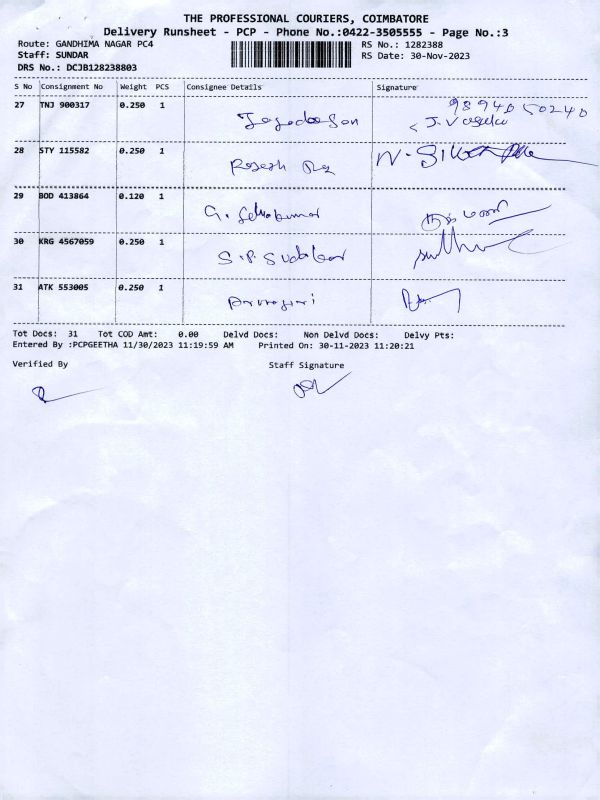 THE PROFESSIONAL COURIERS, COIMBATORE
Delivery Runsheet - PCP - Phone No.:0422-3505555 - Page No.:3
Route: GANDHIMA NAGAR PC4
RS No.: 1282388
Staff: SUNDAR
RS Date: 30-Nov-2023
DRS No.: DCJB128238803
S No Consignment No Weight PCS Consignee Details Signature
27 TNJ 900317 0.250 1
98940 50240
28 STY 115582 0.250 1 Rajesh
29 BOD 413864 0.120 1 G. Selvakumar
30 KRG 4567059 0.250 1 S.P. Sudakar
31 ATK 553005 0.250 1
Tot Docs: 31 Tot COD Amt: 0.00 Delvd Docs: Non Delvd Docs: Delvy Pts:
Entered By :PCPGEETHA 11/30/2023 11:19:59 AM Printed On: 30-11-2023 11:20:21
Verified By Staff Signature